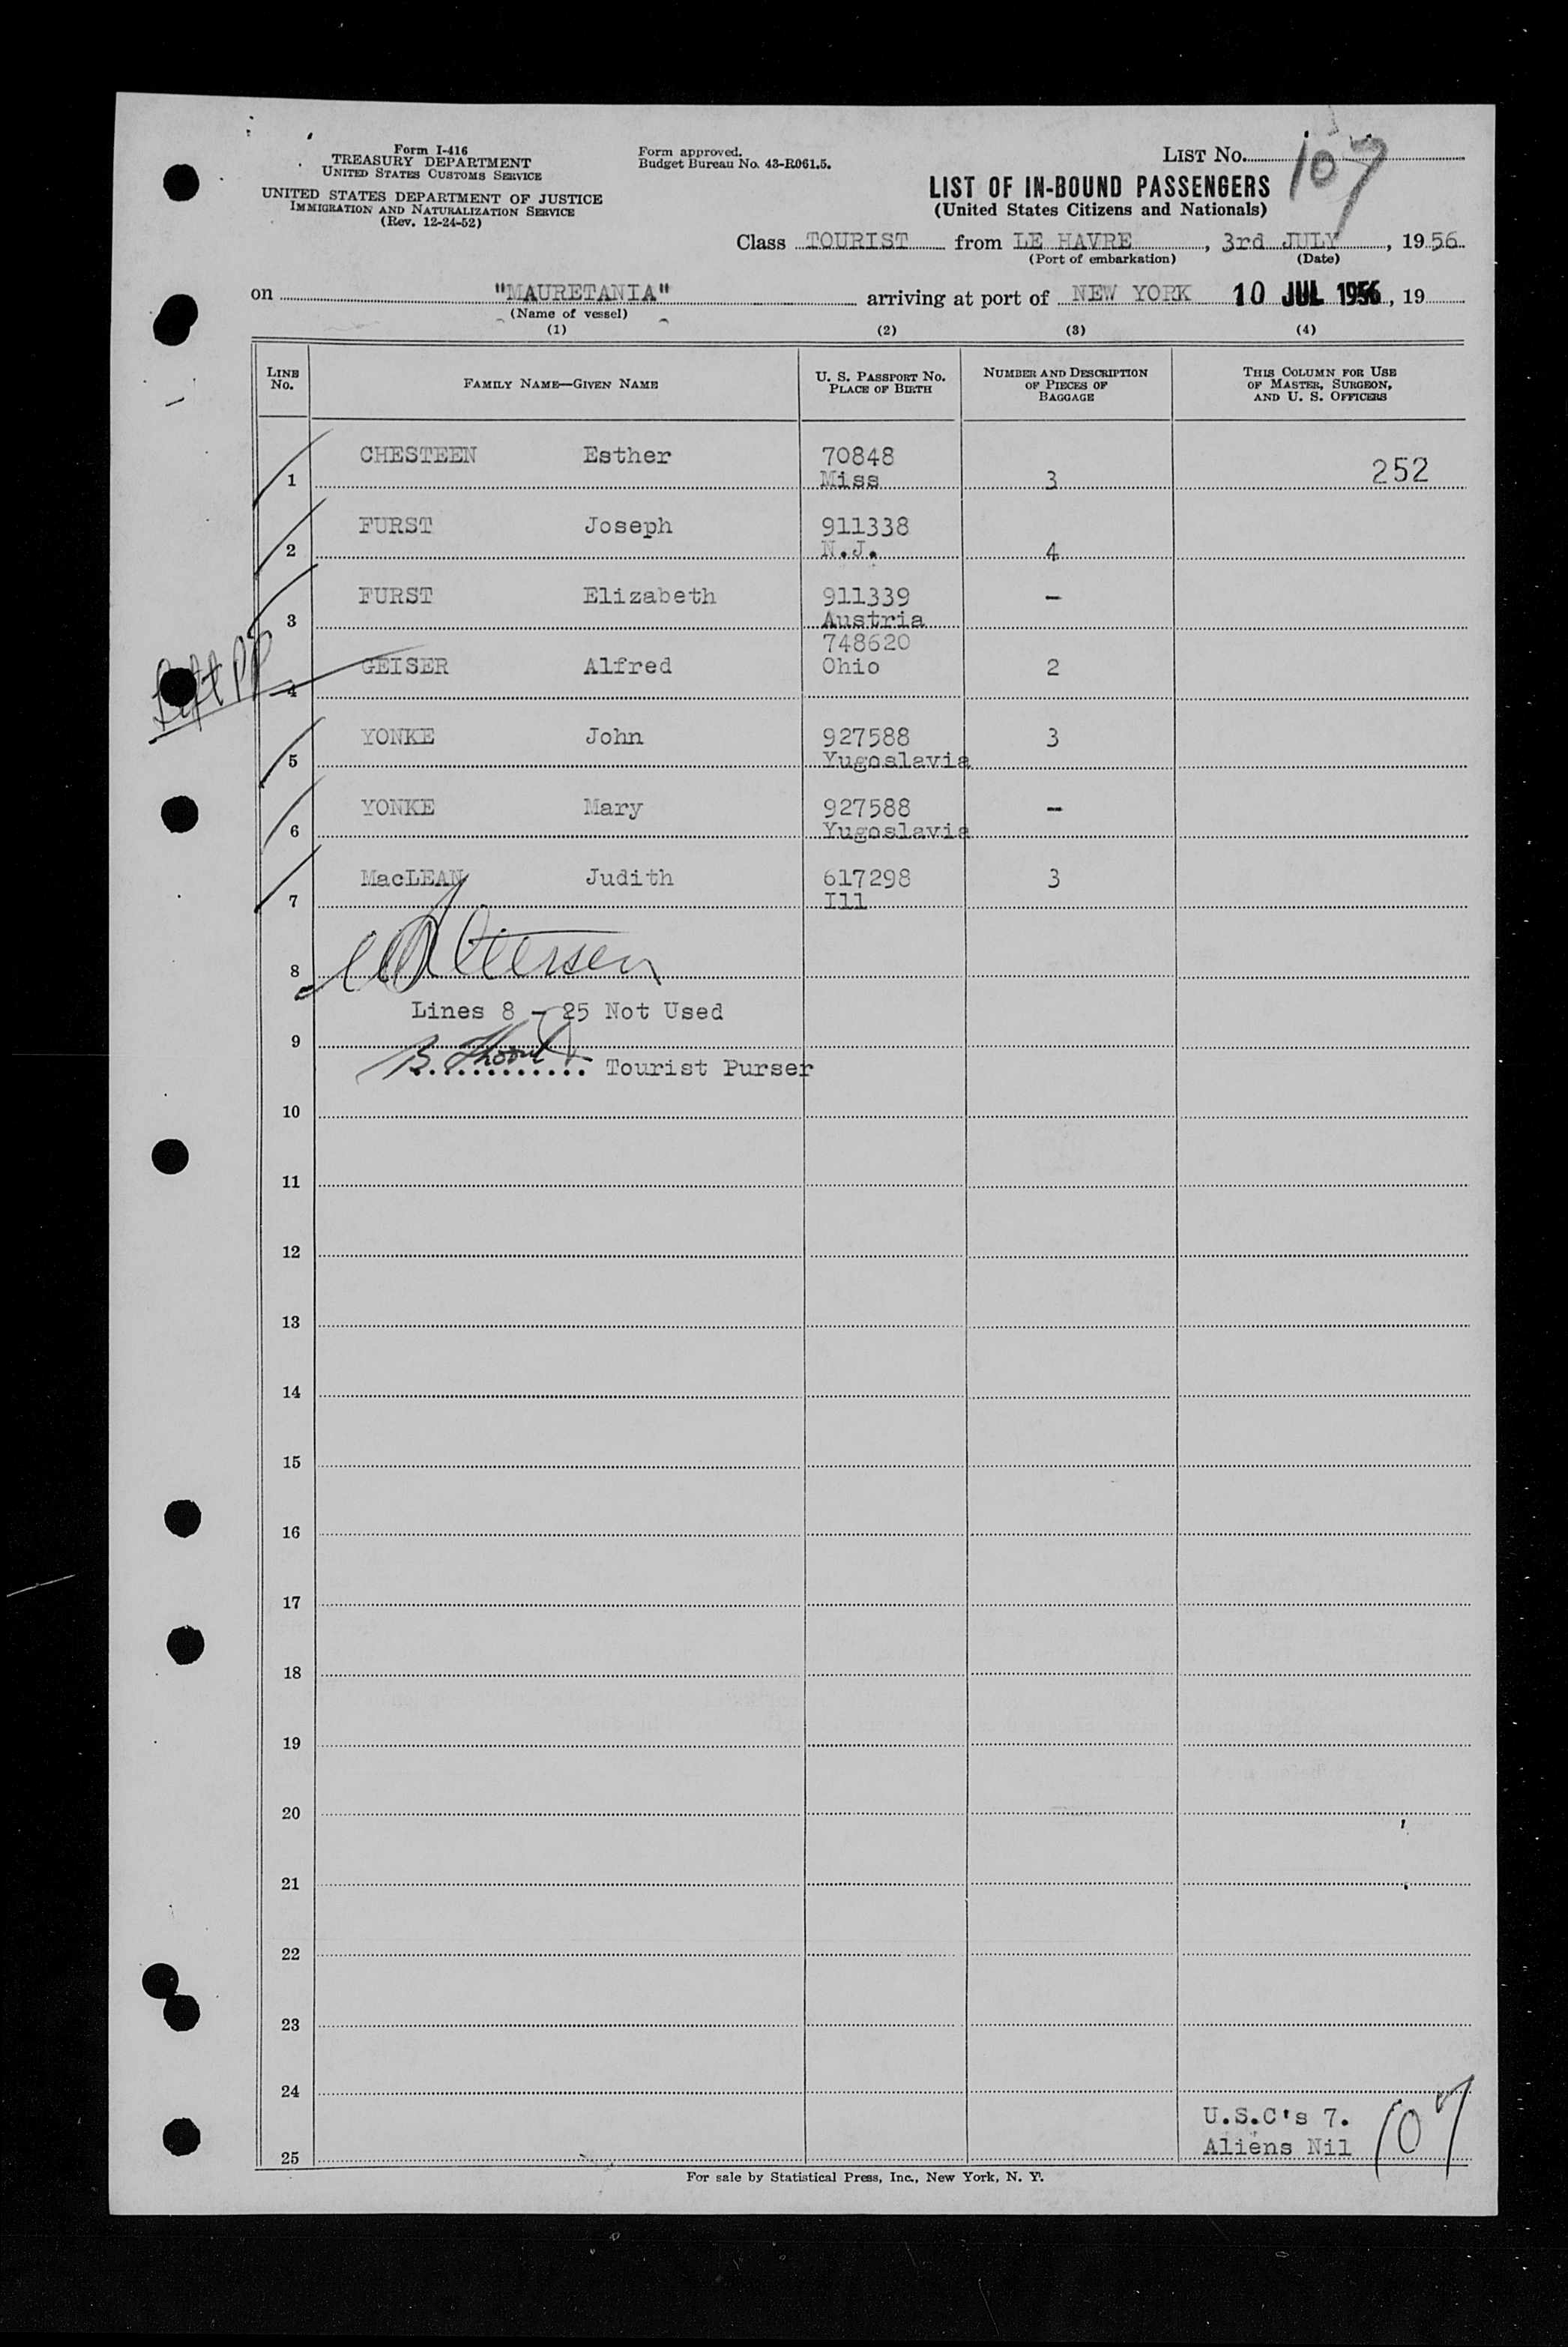 Form I-416
TREASURY DEPARTMENT
UNITED STATES CUSTOMS SERVICE
UNITED STATES DEPARTMENT OF JUSTICE
IMMIGRATION AND NATURALIZATION SERVICE
(Rev. 12-24-52)
Form approved.
Budget Bureau No. 43-R061.5.
LIST No. 107
LIST OF IN-BOUND PASSENGERS
(United States Citizens and Nationals)
Class TOURIST from LE HAVRE, 3rd JULY, 1956
(Port of embarkation) (Date)
on "MAURETANIA" arriving at port of NEW YORK 10 JUL 1956, 19
(Name of vessel)
(1) (2) (3) (4)
LINE No. FAMILY NAME—GIVEN NAME U. S. PASSPORT No. PLACE OF BIRTH NUMBER AND DESCRIPTION OF PIECES OF BAGGAGE THIS COLUMN FOR USE OF MASTER, SURGEON, AND U. S. OFFICERS
CHESTEEN Esther 70848
1 Miss 3 252
FURST Joseph 911338
2 N.J. 4
FURST Elizabeth 911339 -
3 Austria
748620
Left PP GEISER Alfred Ohio 2
4
YONKE John 927588 3
5 Yugoslavia
YONKE Mary 927588 -
6 Yugoslavia
MacLEAN Judith 617298 3
7 Ill
8
Lines 8 - 25 Not Used
9
B. ............ Tourist Purser
10
11
12
13
14
15
16
17
18
19
20
21
22
23
24
U.S.C's 7.
25 Aliens Nil 107
For sale by Statistical Press, Inc., New York, N. Y.